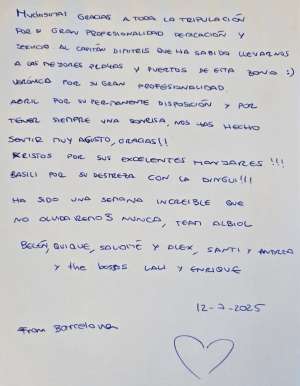 Muchísimas GRACIAS A TODA LA TRIPULACIÓN
POR SU GRAN PROFESIONALIDAD DEDICACIÓN Y
SERVICIO. AL CAPITÁN DIMITRIS QUE HA SABIDO LLEVARNOS
A LAS MEJORES PLAYAS Y PUERTOS DE ESTA ZONA :)
VERÓNICA POR SU GRAN PROFESIONALIDAD.
ABRIL POR SU PERMANENTE DISPOSICIÓN Y POR
TENER SIEMPRE UNA SONRISA, NOS HAS HECHO
SENTIR MUY AGUSTO, GRACIAS!!
KRISTOS POR SUS EXCELENTES MANJARES!!!
BASILI POR SU DESTREZA CON LA DINGUI!!!
HA SIDO UNA SEMANA INCREIBLE QUE
NO OLVIDAREMOS NUNCA, TEAM ALBIOL
BELÉN, QUIQUE, SALOMÉ Y ALEX, SANTI Y ANDREA
Y the bosses LALI Y ENRIQUE
12-7-2025
From Barcelona